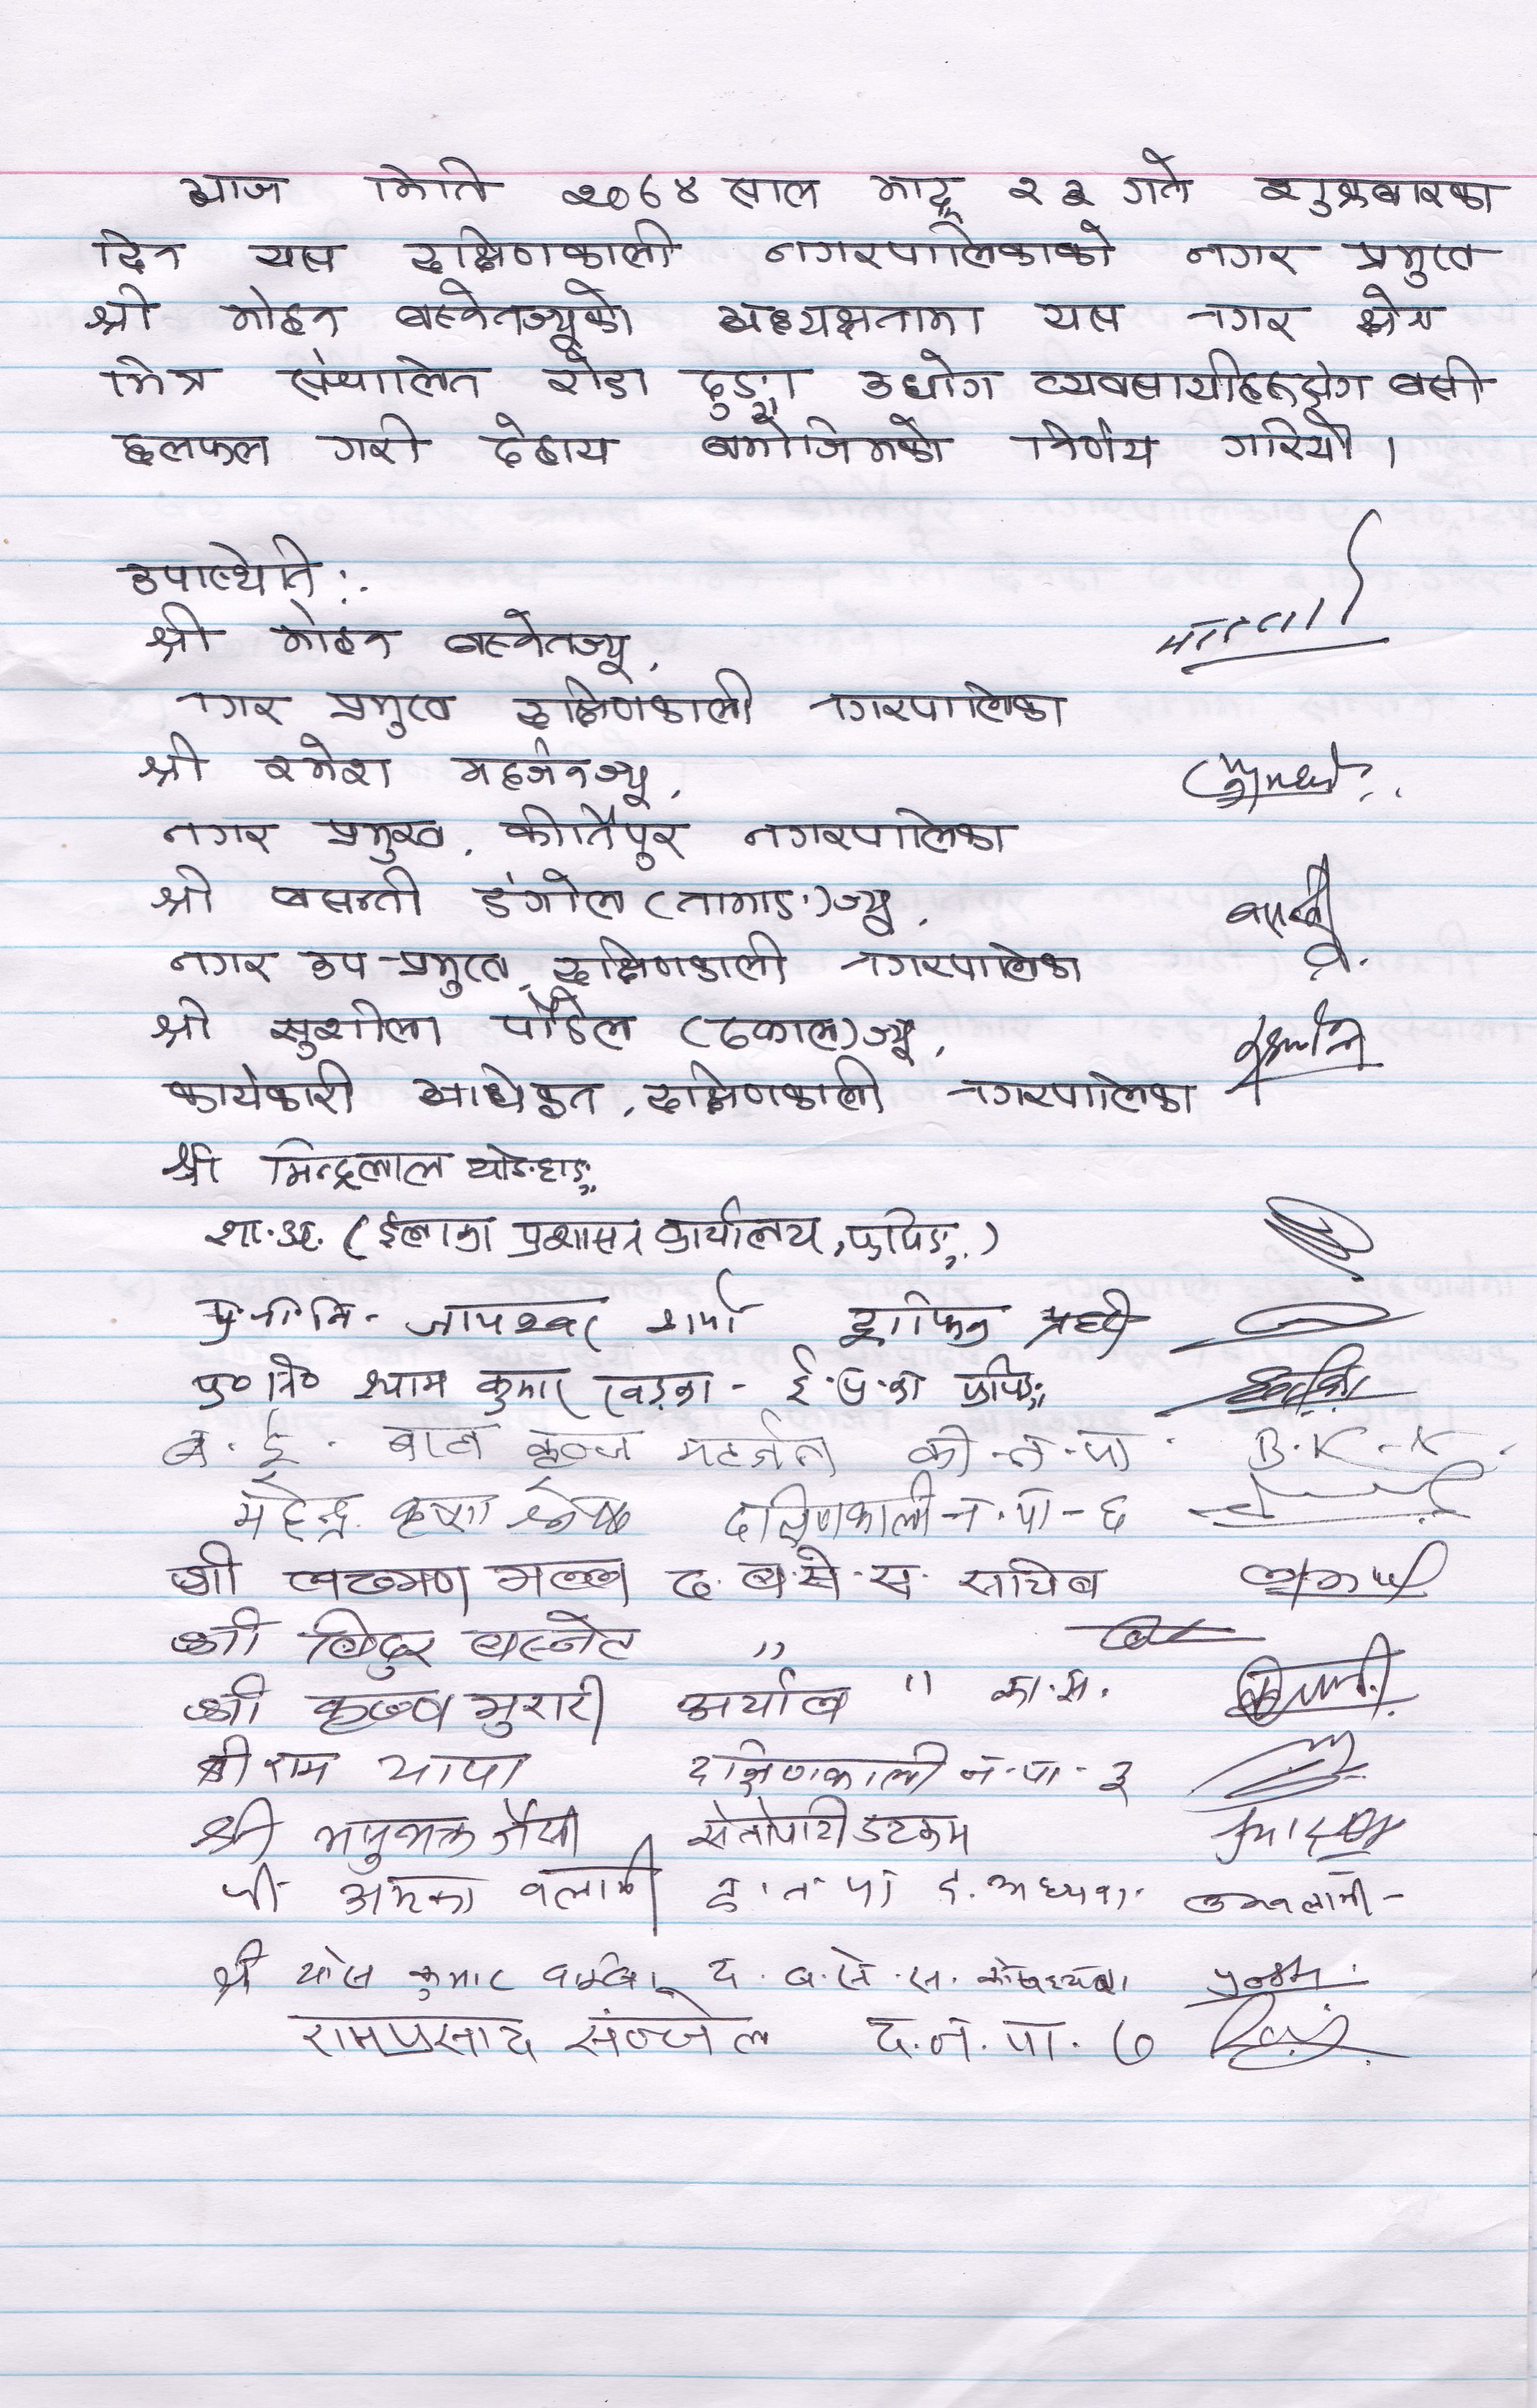 आज मिति २०७४ साल भाद्र २३ गते शुक्रबारका
दिन यस दक्षिणकाली नगरपालिकाको नगर प्रमुख
श्री मोहन बस्नेतज्यूको अध्यक्षतामा यस नगर क्षेत्र
भित्र संचालित रोडा ढुङ्गा उधोग व्यवसायीहरूसँग बसी
छलफल गरी देहाय बमोजिमको निर्णय गरियो।
उपास्थिति :.
श्री मोहन बस्नेतज्यू,
नगर प्रमुख दक्षिणकाली नगरपालिका
श्री रमेश महर्जनज्यू,
नगर प्रमुख, कीर्तिपुर नगरपालिका
श्री बसन्ती डंगोल (तामाङ)ज्यू,
नगर उप-प्रमुख, दक्षिणकाली नगरपालिका
श्री सुशीला पौडेल (ढकाल)ज्यू,
कार्यकारी अधिकृत, दक्षिणकाली नगरपालिका
श्री मिन्द्रलाल योङहाङ्
शा.अ. (ईलाका प्रशासन कार्यालय, फर्पिङ्)
प्र.नि.नि- शर्मा
प्र०नि० श्याम कुमार खड्का - ई.प्र.का फर्पिङ्
ब. ई. बाल कृष्ण महर्जन की-न-पा B.K.
महेन्द्र कृष्ण श्रेष्ठ दक्षिणकाली-न.पा-६
श्री लक्ष्मण मल्ल द.ब.से.स. सचिब
श्री बिदुर बस्नेट "
श्री कृष्ण मुरारी अर्याल " का.स.
श्री राम थापा दक्षिणकाली न.पा-३
श्री सेतोपाटी डटकम
बलामी द.न.पा
श्री कुमार द.ब.से.स. कोषध्यक्ष
रामप्रसाद संज्जेल द.न.पा. ७